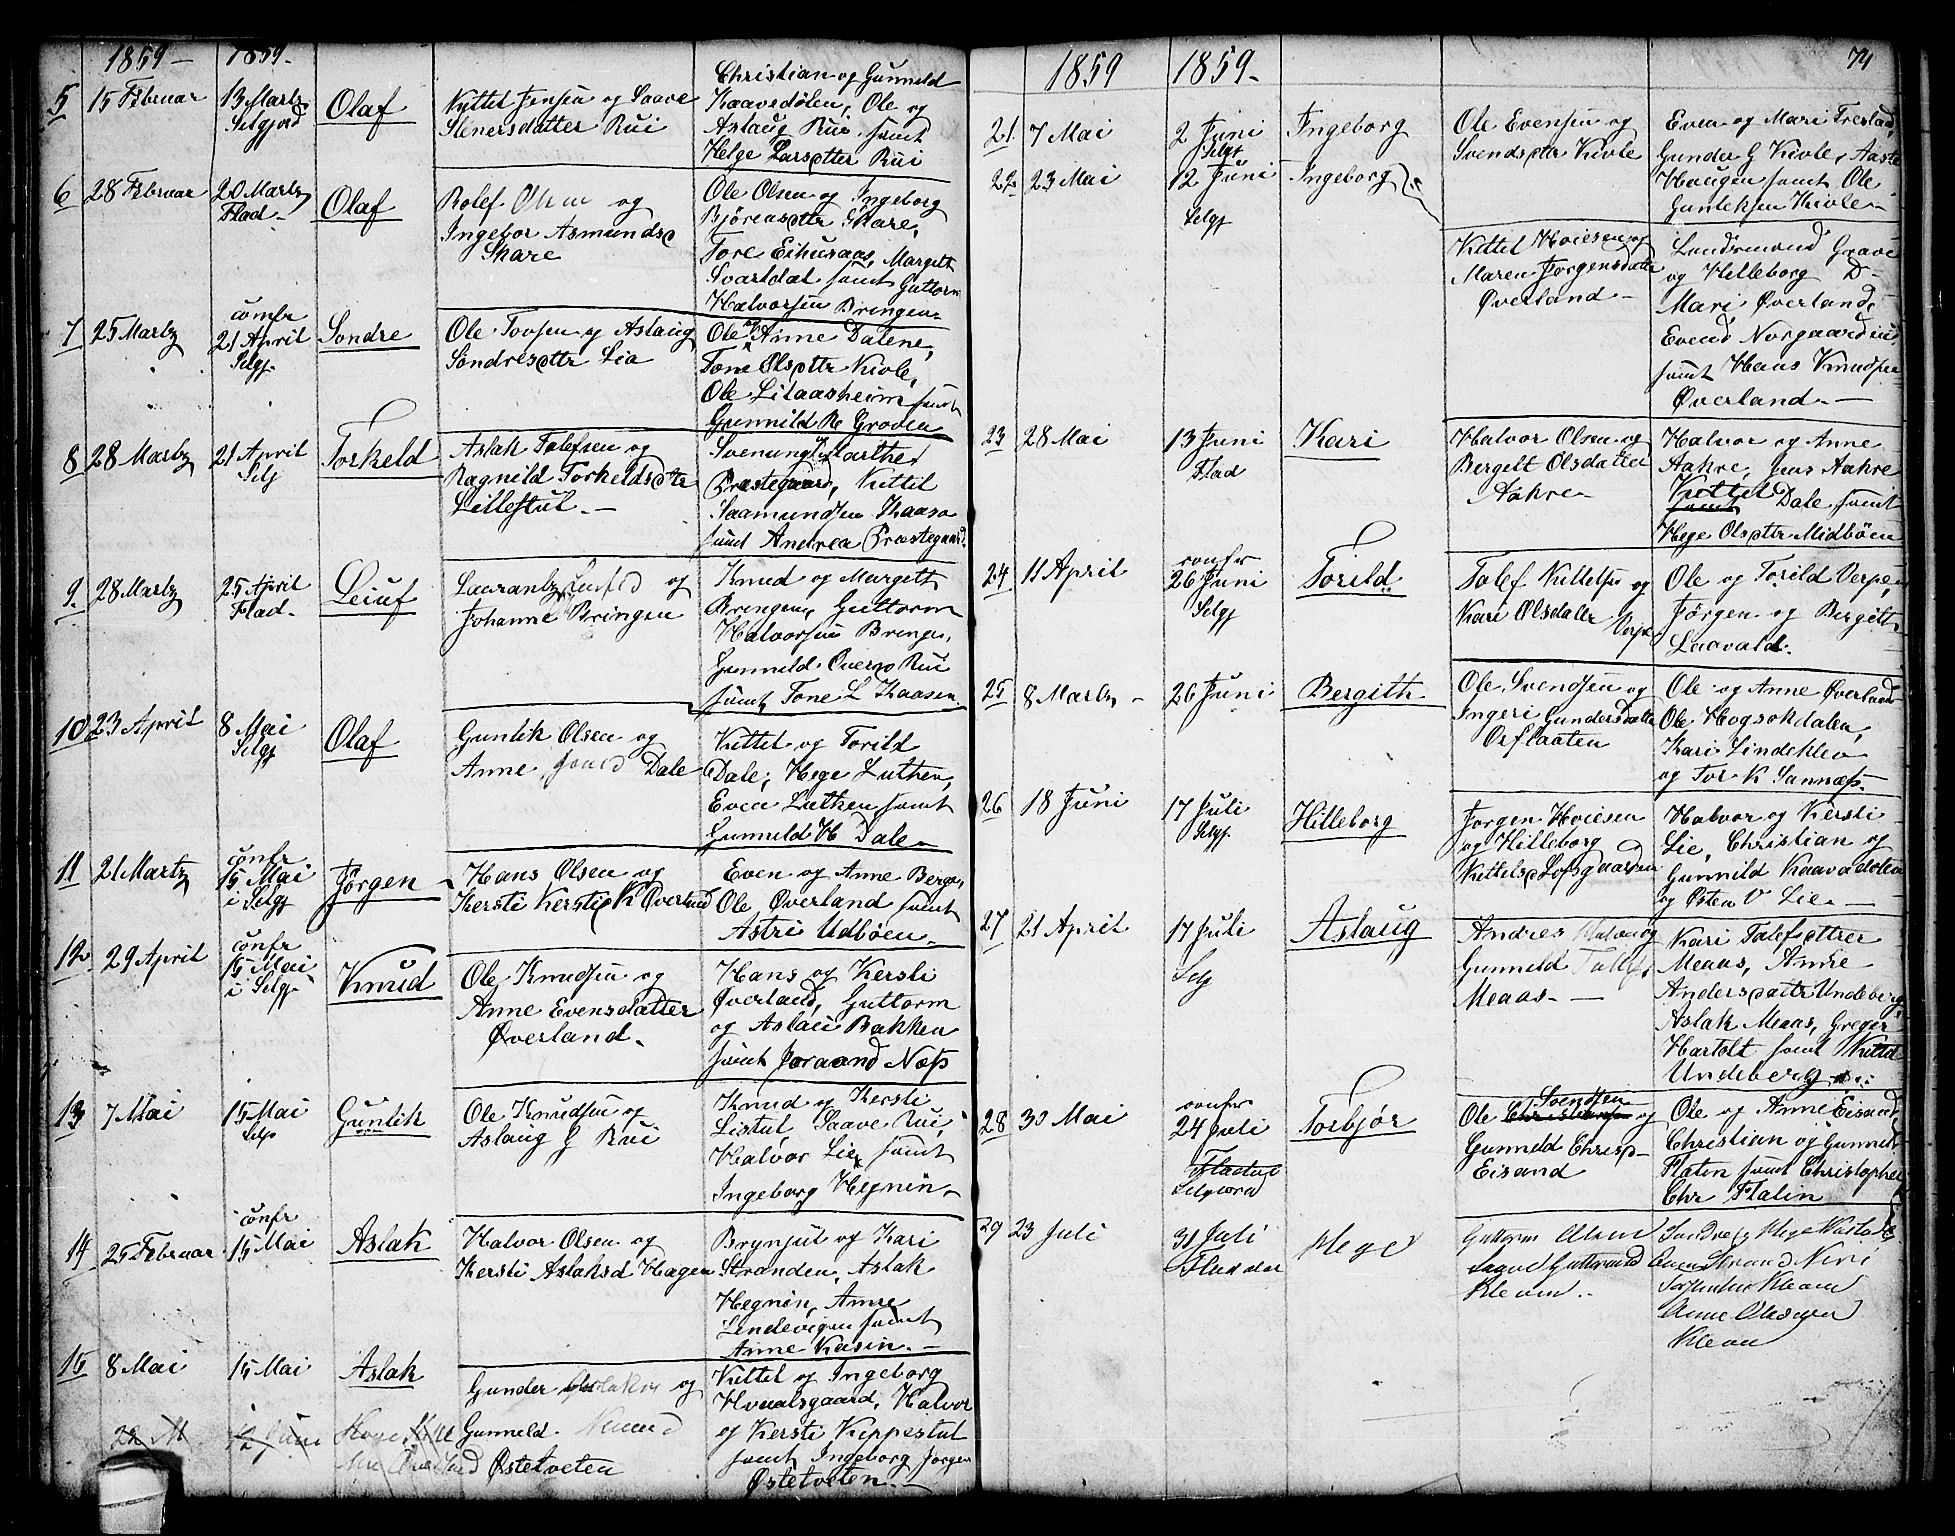 1859 — 1859.
5 15 Februar 13 Martz Selgjord Olaf
Kittel Jensen og Saave
Stenersdatter Rui
Christian og Gunneld
Kaavedölen, Ole og
Aslaug Rui, samt
Helge Larsdtter Rui
6 28 Februar 20 Martz Flad. Olaf
Rolef Olsen og
Ingebor Asmundsd
Skare
Ole Olsen og Ingeborg
Björensdttr Skare,
Tore Eihusaas, Margett
Svartdal samt Guttorm
Halvorsen Bringen.
7 25 Martz confr 21 April Selgj. Sondre
Ole Tovsen og Aslaug
Söndresdttr Lia
Ole og Anne Dalene,
Tone Olsdttr Kivle,
Ole Litaasheim samt
Gunnild R Groven
8 28 Martz 21 April Selg Torkeld
Aslak Talefsen og
Ragnild Torkeldsdttr
Lillestul. —
Svenung og Marthe
Præstegaard, Kittel
Saamundsen Kaasa
samt Andrea Præstegaard.
9 28 Martz 25 April Flad. Leiuf
Laurantz og
Johanne Bringen
Knud og Margett
Bringen, Guttorm
Halvorsen Bringe,
Gunneld Overbø Rui
samt Tone L Kaasen
10 23 April 8 Mai Selgj Olaf
Gunlik Olsen og
Anne Dale
Kittel og Torild
Dale, Hege Luthen,
Even Luthen samt
Gunneld H Dale
11 21 Martz confr 15 Mai i Selgj Jörgen
Hans Olsen og
Kersti K Overland
Even og Anne Berge,
Ole Overland samt
Astri Udböen.
12 29 April confr 15 Mai i Selgj. Knud
Ole Knudsen og
Anne Evensdatter
Øverland.
Hans og Kersti
Øverland, Guttorm
og Aslau Bakken
samt Joraand Næss
13 7 Mai 15 Mai Selg Gunlik
Ole Knudsen og
Aslaug G Rui
Knud og Kersti
Listul, Saave Rui,
Halvor Lie samt
Ingeborg Hegnin
14 25 Februar confr 15 Mai Aslak
Halvor Olsen og
Kersti Aslaksd Hagen
Brynjul og Kari
Stranden, Aslak
Hegnin, Anne
Lendevigen samt
Anne Kasin. —
15 8 Mai 15 Mai Aslak
Gunder Aslaksen og
Gunneld
Østetveten
Kittel og Ingeborg
Hvaalsgaard, Halvor
og Kersti Kippestul
samt Ingeborg Jörgen
Østetveten. —
1859 1859. 74
21. 7 Mai 2 Juni Selgj Ingeborg
Ole Evensen og
Svendsdttr Kivle
Even og Mari Treslad,
Gunder G Kivle, Aaste
Haugen samt Ole
Gunleksen Kivle.
22 23 Mai 12 Juni Selgj Ingeborg
Kittel Hoiesen og
Maren Jörgensdatter
Øverland —
Sundsmoud Grave
og Hilleborg D—
Mari Øverland,
Evend Norgaard
samt Hans Knudsen
Øverland. —
23 28 Mai 13 Juni Flad Kari
Halvor Olsen og
Bergelt Olsdatter
Aahre
Halvor og Anne
Aahre, Jens Aahre
Kittel Dale samt
Hege Olsdttr Midböen
24 11 April confr 26 Juni Selgj Torild
Talef Kittelss og
Kari Olsdatter Verpe
Ole og Torild Verpe,
Jörgen og Bergitt
Laavald.
25 8 Martz — 26 Juni Bergith
Ole Svendsen og
Ingeri Gundersdatter
Orslaaten
Ole og Anne Øverland
Ole Hogsokdalen,
Kari Lindeklev
og Tor K Sannæss.
26 18 Juni 17 Juli Selgj. Hilleborg
Jorgen Hoiesen
og Hilleborg
Kittelsd Lofsgaarden
Halvor og Kersti
Lie, Christian og
Gunneld Kaavadölen
og Østen V Lie. —
27 21 April 17 Juli Selg Aslaug
Andres og
Gunneld
Meaas. —
Kari Talefsdttrer
Meaas, Anne
Andersdattr Undeberg
Aslak Meaas, Greger
Hartolt samt Kittel
Undeberg
28 30 Mai confr 24 Juli Flad Selgjord Torbjör
Ole Christensen Svendsen og
Gunneld Chrisd
Eisand
Ole og Anne Eisand,
Christian og Gunneld
Flatin samt Christopher
Chr Flatin
29 23 Juli 31 Juli Flaadal Hege
Guttorm Olsen
Guttormsd
Kleven.
Sondre og Hege
Even Strand
Kleven
Anne
Kleven